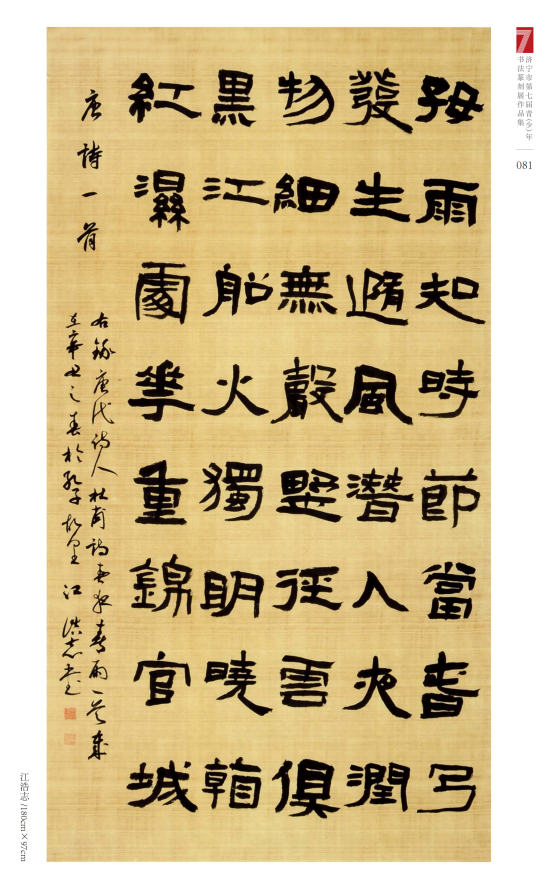 7
济宁市第七届青(少)年
书法篆刻展作品集
081
好雨知時節當春乃
發生隨風潛入夜潤
物細無聲野徑雲俱
黑江船火獨明曉看
紅濕處華重錦官城
唐詩一首
右錄唐代詩人杜甫詩春夜喜雨一首歲
在辛丑之春於孔子故里江浩志書
江浩志/180cm×97cm